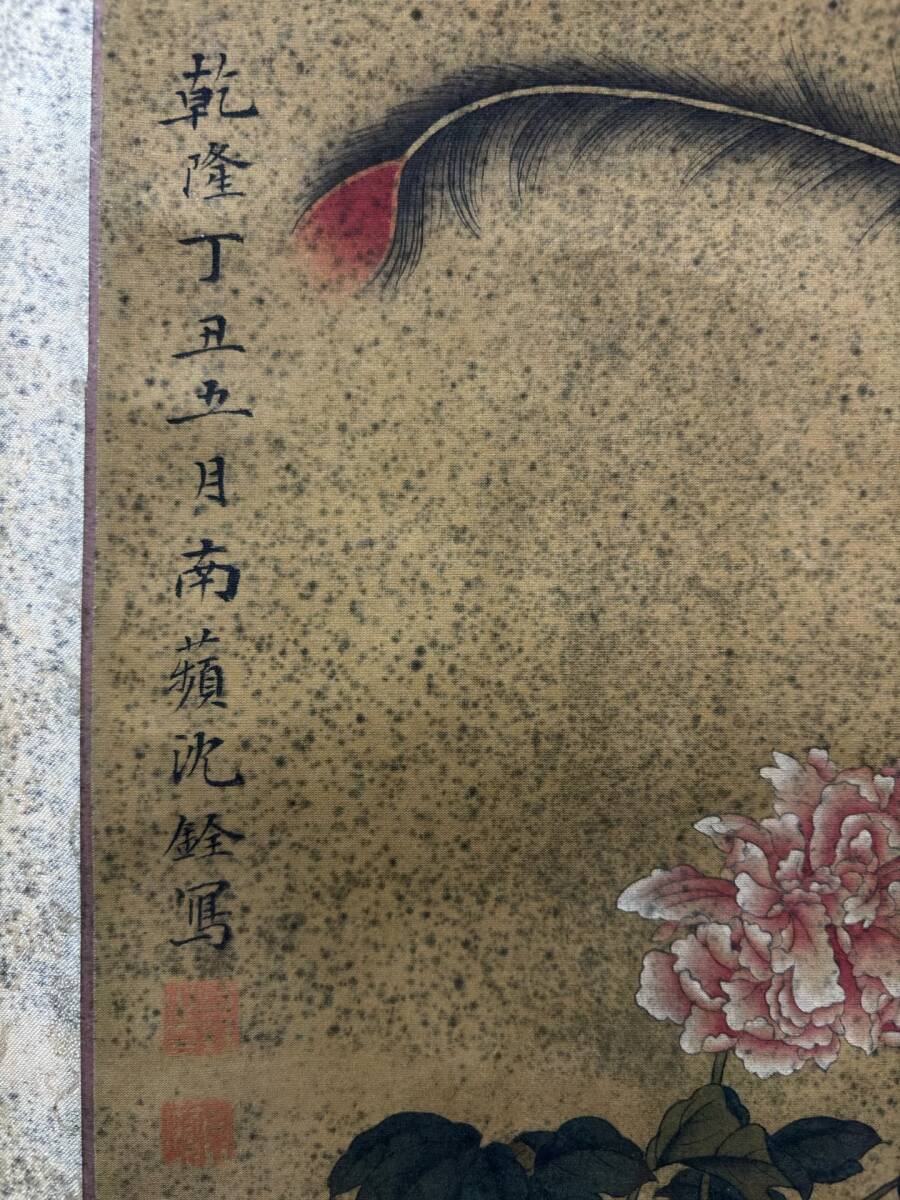 乾隆丁丑五月南蘋沈銓寫